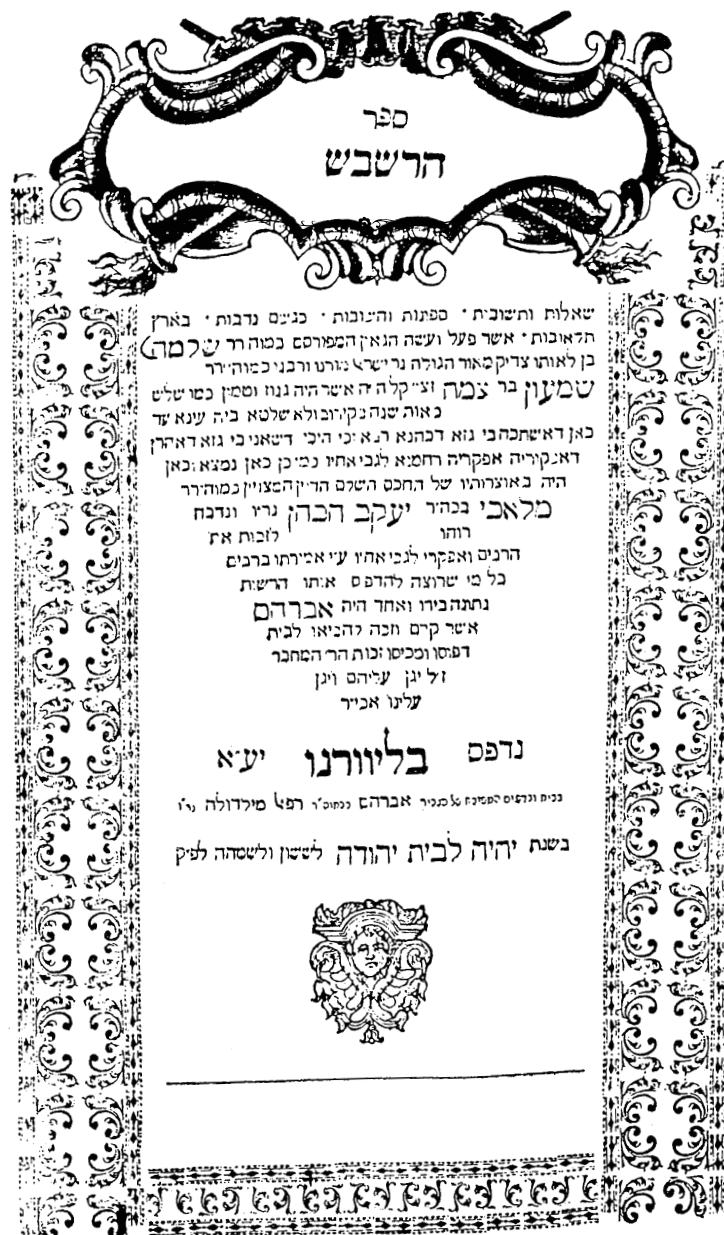 ספר
הרשבש
שאלות ותשובות ספינות והטובות כגשם נדבות בארץ
תלאובות אשר פעל ועשה הגאון המפורסם כמוהרר שלמה
בן לאותו צדיק מאור הגולה נר ישראל מורנו ורבנו כמוהירר
שמעון בר צמח זצ״ל היה אשר היה גנוז וטמון כמו שלש
מאות שנה בקירוב ולא שלטא ביה עינא עד
כאן דאשתכח בי גזא דכהנא דשאני בי גזא דאהרן
אפקריה רחמנא לגבי אחיו כמו כן כאן נמצא
היה באוצרותיו של החכם השלם הדיין המצויין כמוהירר
מלאכי בכה״ר יעקב הכהן נר״ו ונדבה
רוחו לזכות את
הרבים ואפקרי לגבי אחיו ע״י אמירתו ברבים
כל מי שרוצה להדפיס אותו הרשות
נתונה בידו ואחד היה אברהם
אשר קדם וזכה להביאו לבית
דפוסו ומכיסו זכות הר׳ המחבר
ז״ל יגן עליהם ויגן
עלינו אכי״ר
נדפס בליוורנו יע״א
בבית ובדפוס אברהם רפאל מילדולה נר״ו
בשנת יהיה לבית יהודה לששון ולשמחה לפ״ק